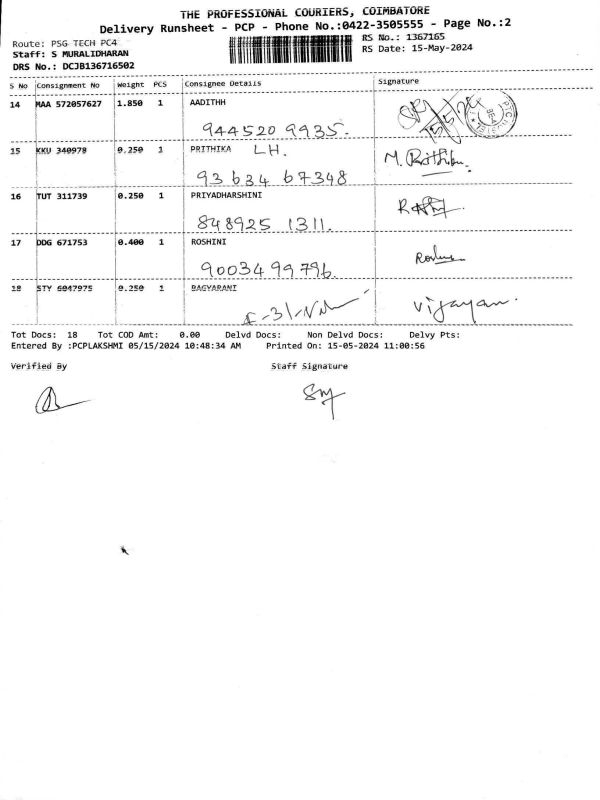 THE PROFESSIONAL COURIERS, COIMBATORE
Delivery Runsheet - PCP - Phone No.:0422-3505555 - Page No.:2
Route: PSG TECH PC4
RS No.: 1367165
Staff: S MURALIDHARAN
RS Date: 15-May-2024
DRS No.: DCJB136716502
S No Consignment No Weight PCS Consignee Details Signature
14 MAA 572057627 1.850 1 AADITHH
944520 9935.
15 KKU 340978 0.250 1 PRITHIKA LH.
93634 67348 M. Prithika.
16 TUT 311739 0.250 1 PRIYADHARSHINI
848925 1311.
17 DDG 671753 0.400 1 ROSHINI
9003499796.
18 STY 6047975 0.250 1 BAGYARANI
Vijayan.
Tot Docs: 18 Tot COD Amt: 0.00 Delvd Docs: Non Delvd Docs: Delvy Pts:
Entered By :PCPLAKSHMI 05/15/2024 10:48:34 AM Printed On: 15-05-2024 11:00:56
Verified By Staff Signature